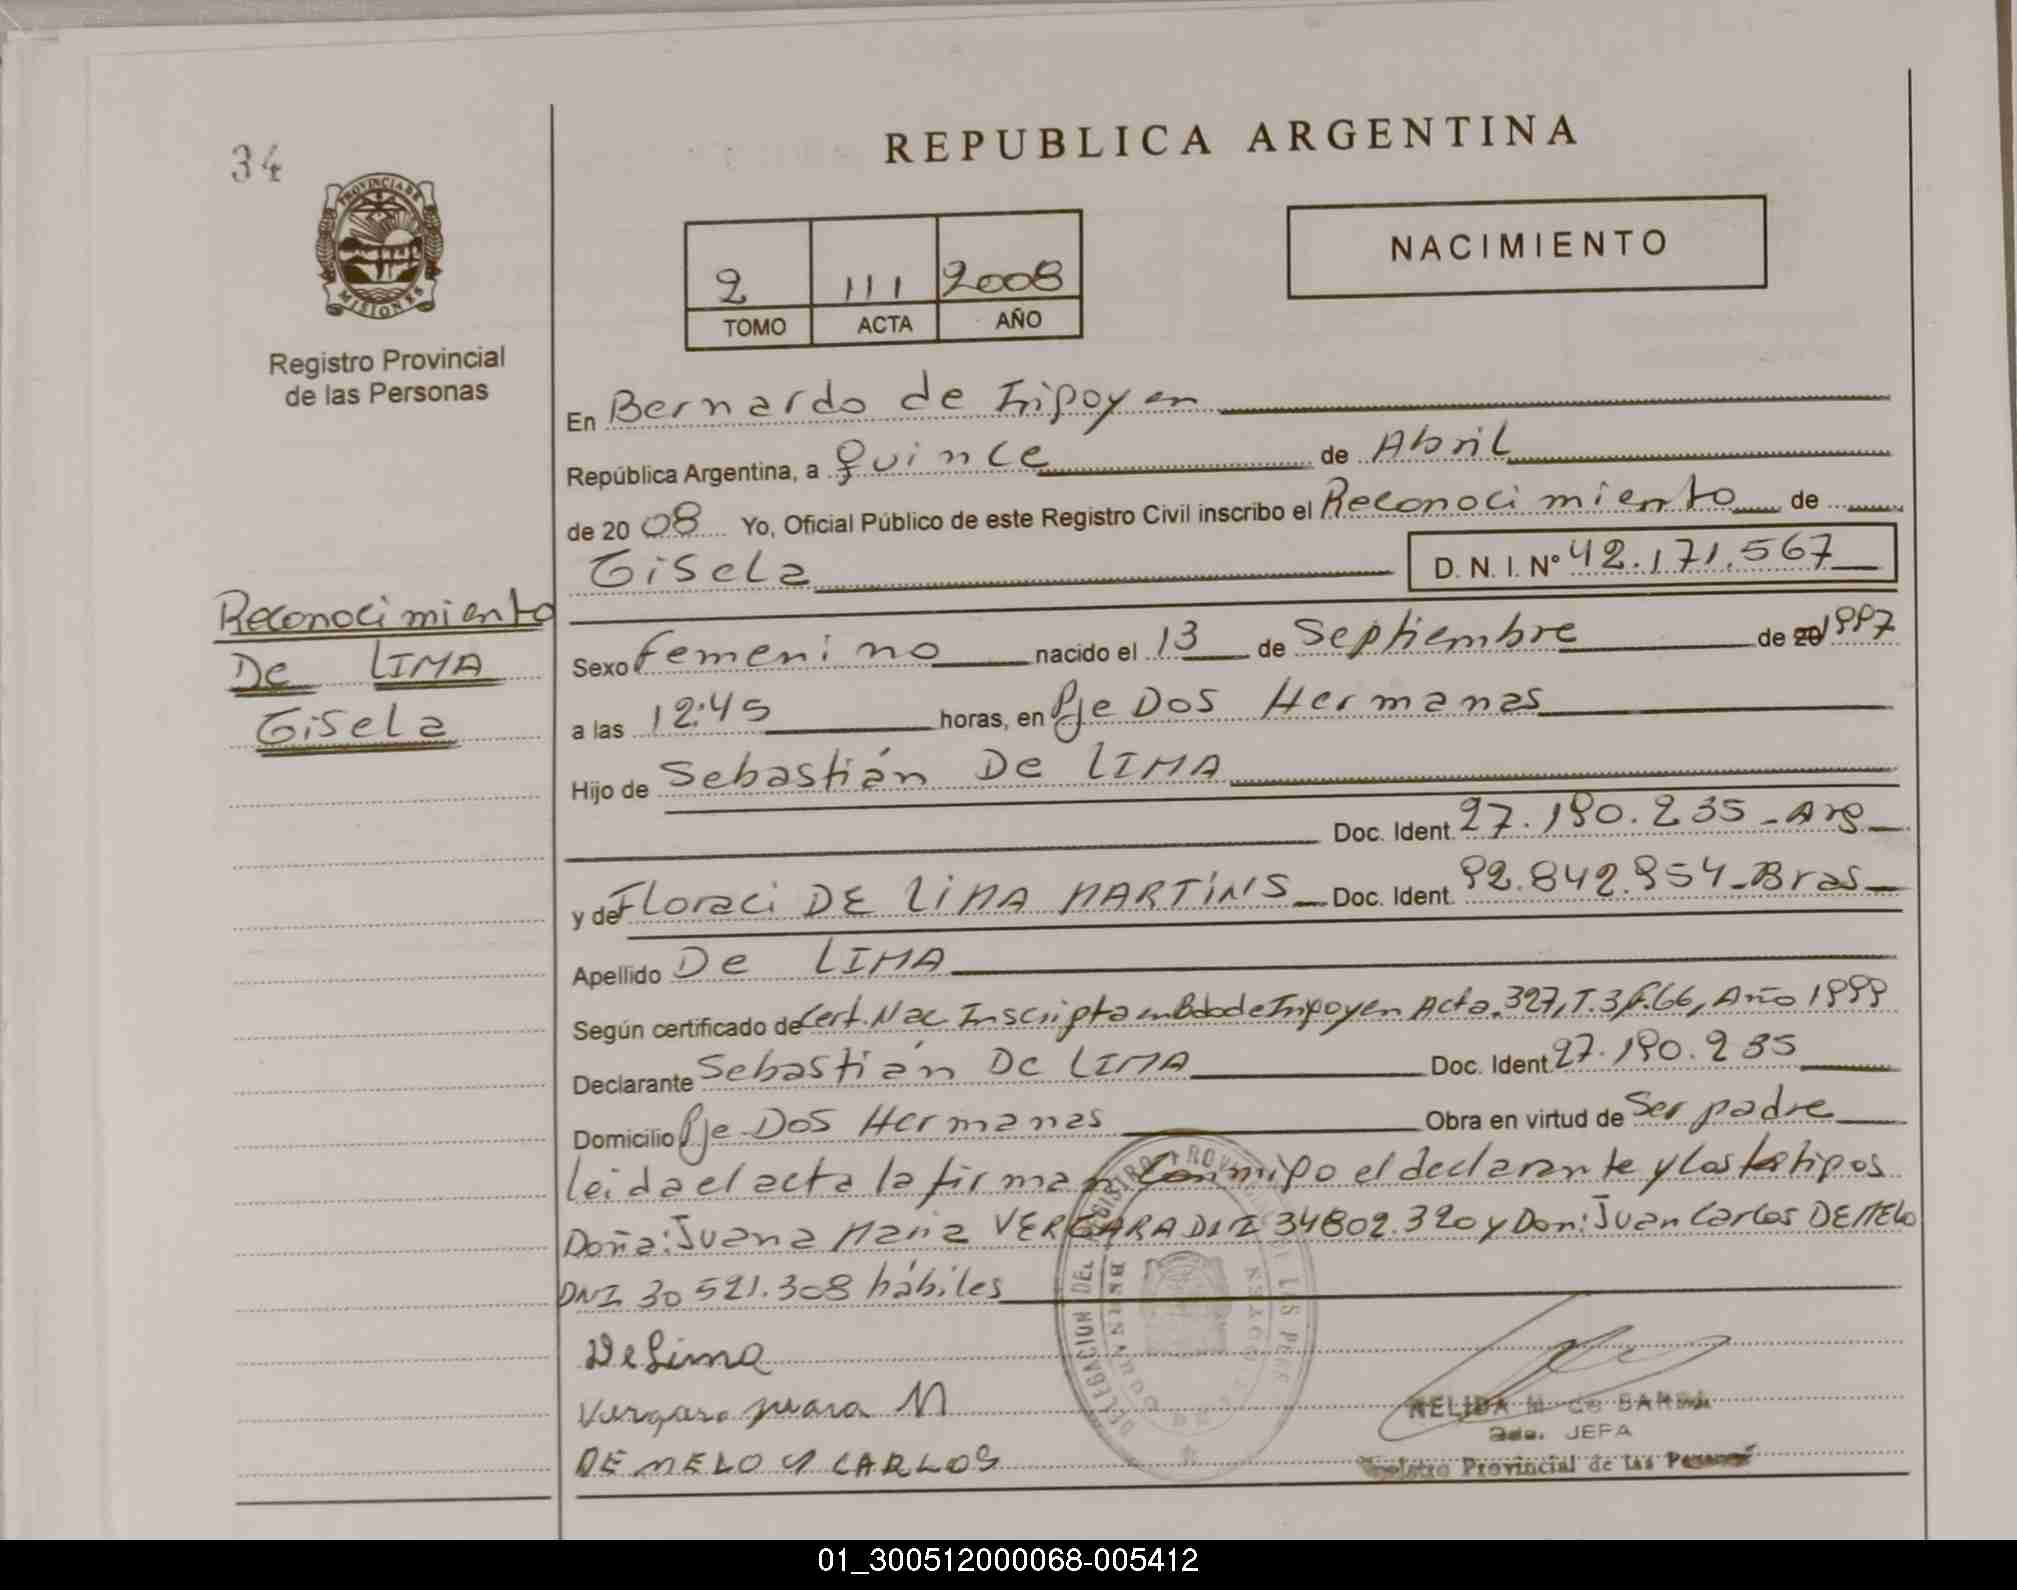 34
REPUBLICA ARGENTINA
PROVINCIA DE
MISIONES
Registro Provincial
de las Personas
2 111 2008
TOMO ACTA AÑO
NACIMIENTO
En Bernardo de Irigoyen
República Argentina, a Quince de Abril
de 2008 Yo, Oficial Público de este Registro Civil inscribo el Reconocimiento de
Gisela D. N. I. Nº 42.171.567
Reconocimiento
De LIMA
Gisela
Sexo Femenino nacido el 13 de Septiembre de 20 1997
a las 12:45 horas, en Pje Dos Hermanas
Hijo de Sebastián De LIMA
Doc. Ident. 27.190.235 - Arg
y de Floraci DE LIMA MARTINS Doc. Ident. 92.842.954 - Bras
Apellido De LIMA
Según certificado de Cert. Nac Inscripta en Bdo de Irigoyen Acta. 327, T.3, F.66, Año 1999
Declarante Sebastián De LIMA Doc. Ident. 27.190.235
Domicilio Pje Dos Hermanas Obra en virtud de Ser padre
Leida el acta la firman conmigo el declarante y los testigos
Doña: Juana Maria VERGARA DNI 34802.320 y Don: Juan Carlos DE MELO
DNI 30521.308 hábiles
De Lima
Vergara Juana M
DE MELO J CARLOS
NELIDA M. de
2da. JEFA
Registro Provincial de las Personas
01_300512000068-005412